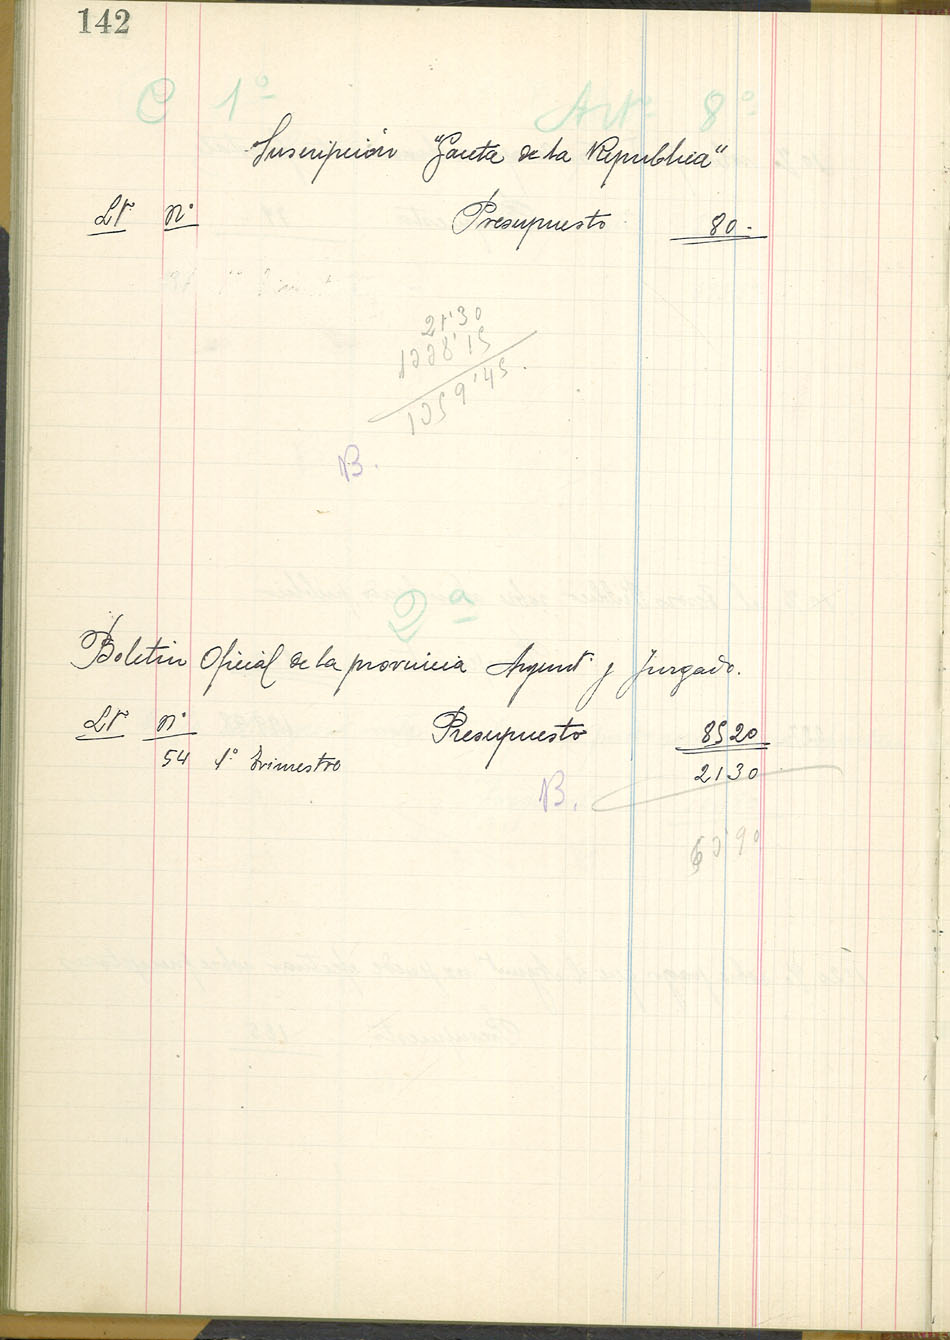 142
C 1º Artº 8º
Suscripción "Gaceta de la Republica"
Lº Nº Presupuesto 80.-
21'30
1228'15
1259'45
B.
2ª
Boletin Oficial de la provincia Ayuntº y Juzgado.
Lº Nº Presupuesto 8520
54 1º Trimestre 2130
B.
63'90